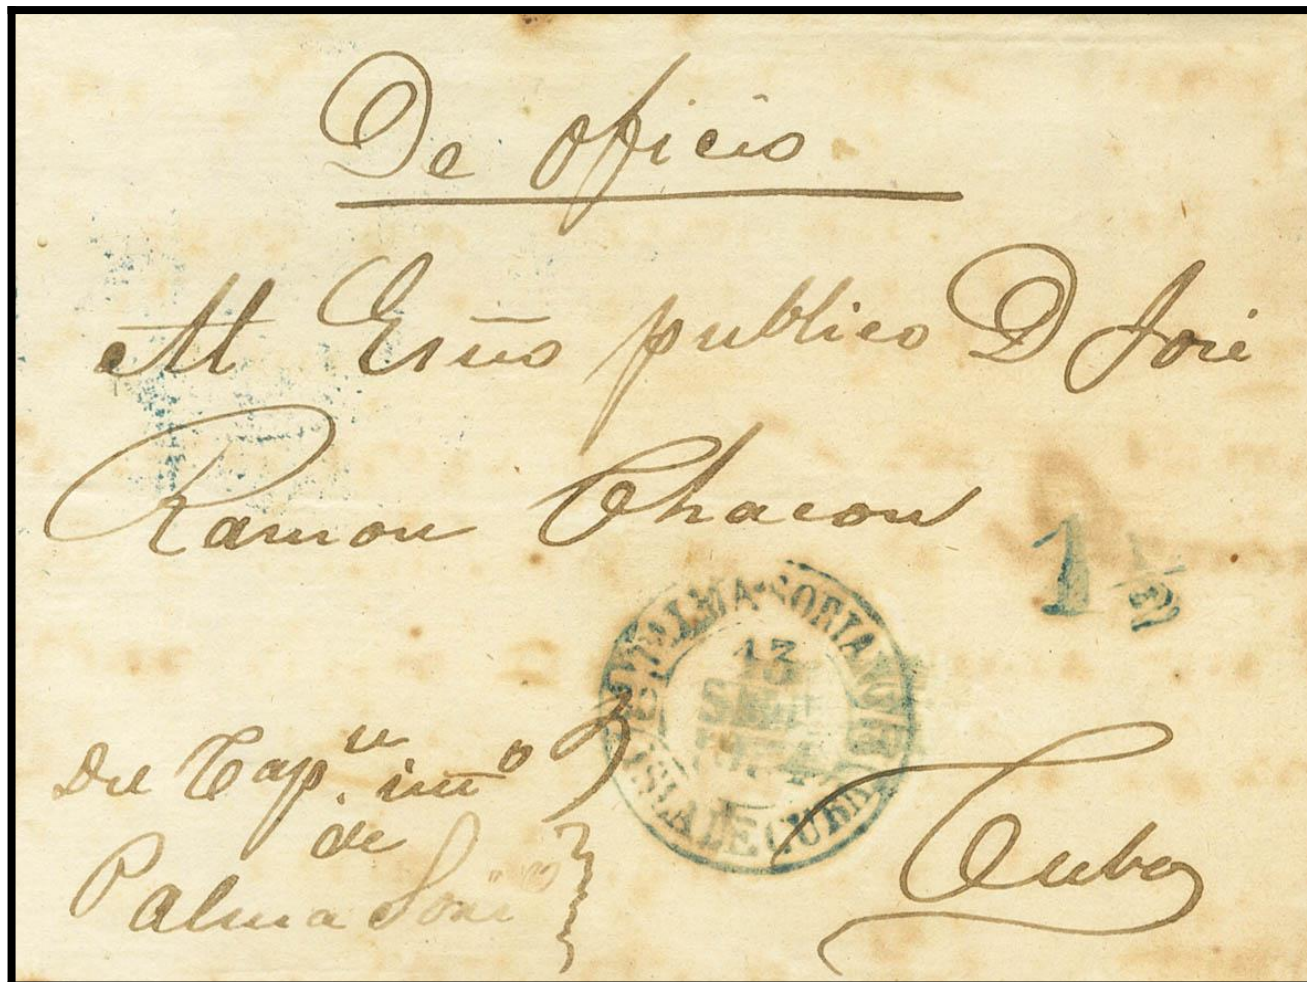 De oficio
Al Esño publico D José
Ramon Chacon
1 1/2
PALMA-SORIANO
ISLA DE CUBA
Del Capn. imo
de
Palma Sori
Cuba